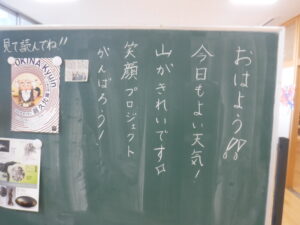 おはよう!!
今日もよい天気!
山がきれいです
笑顔プロジェクト
がんばろう!
見て読んでね!!
OKINA Kyun